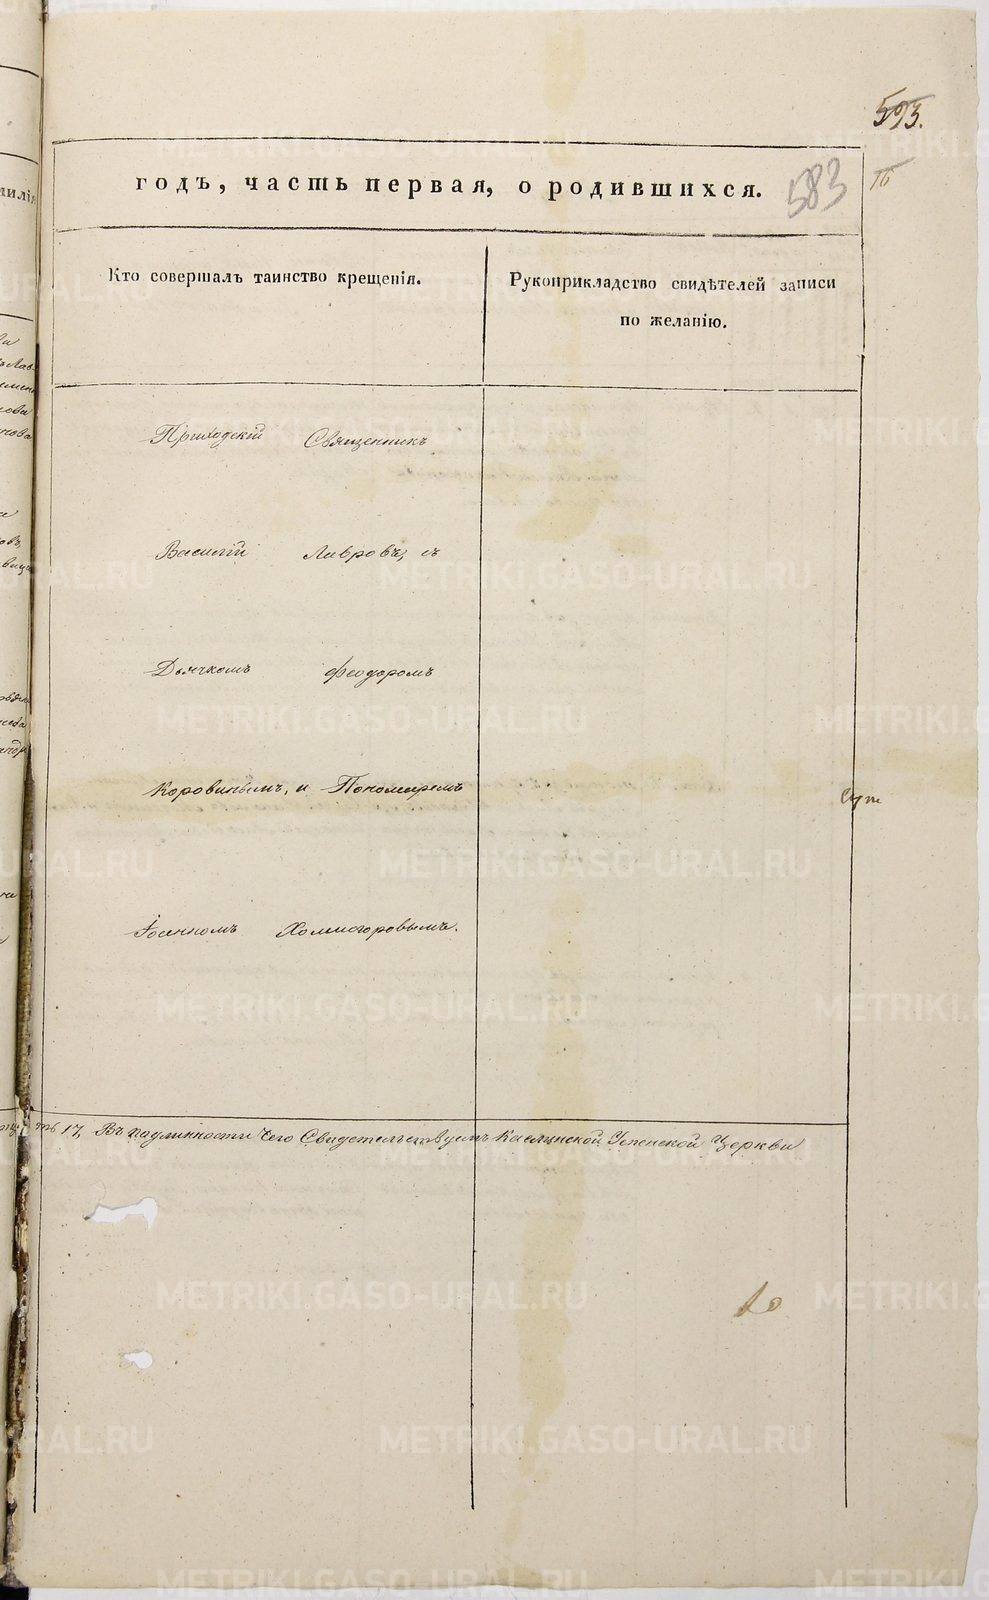 593.
583
годъ, часть первая, о родившихся.
Кто совершалъ таинство крещенія.
Рукоприкладство свидѣтелей записи
по желанію.
Приходскій Священникъ
Василій Лавровъ, съ
Дьячкомъ Феодоромъ
Коровинымъ, и Пономаремъ
Іоанномъ Холмогоровымъ.
17, Въ подлинности чего Свидетельствуемъ Каслинской Успенской Церкви
METRIKI.GASO-URAL.RU